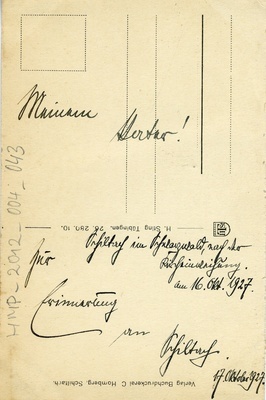 Meinem
Vater!
HMP_2012_004_043
H. Sting Tübingen. 26. 280. 10.
Schiltach im Schwarzwald, nach der
Kircheinweihung.
am 16. Okt. 1927.
Zur
Erinnerung
an
Schiltach.
17. Oktober 1927.
Verlag Buchdruckerei C. Homberg, Schiltach.